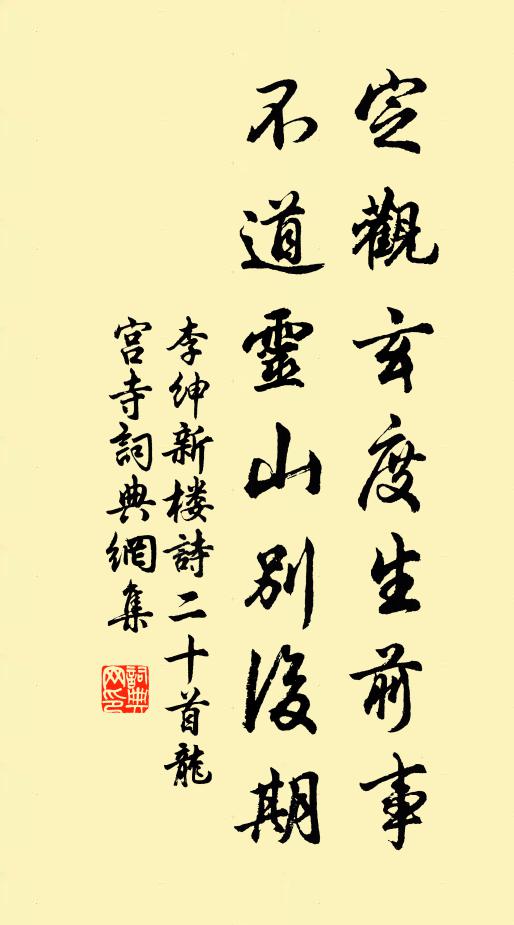 定觀玄度生前事
不道靈山別後期
李紳新楼詩二十首龍
宮寺詞典網集
詞典
网印